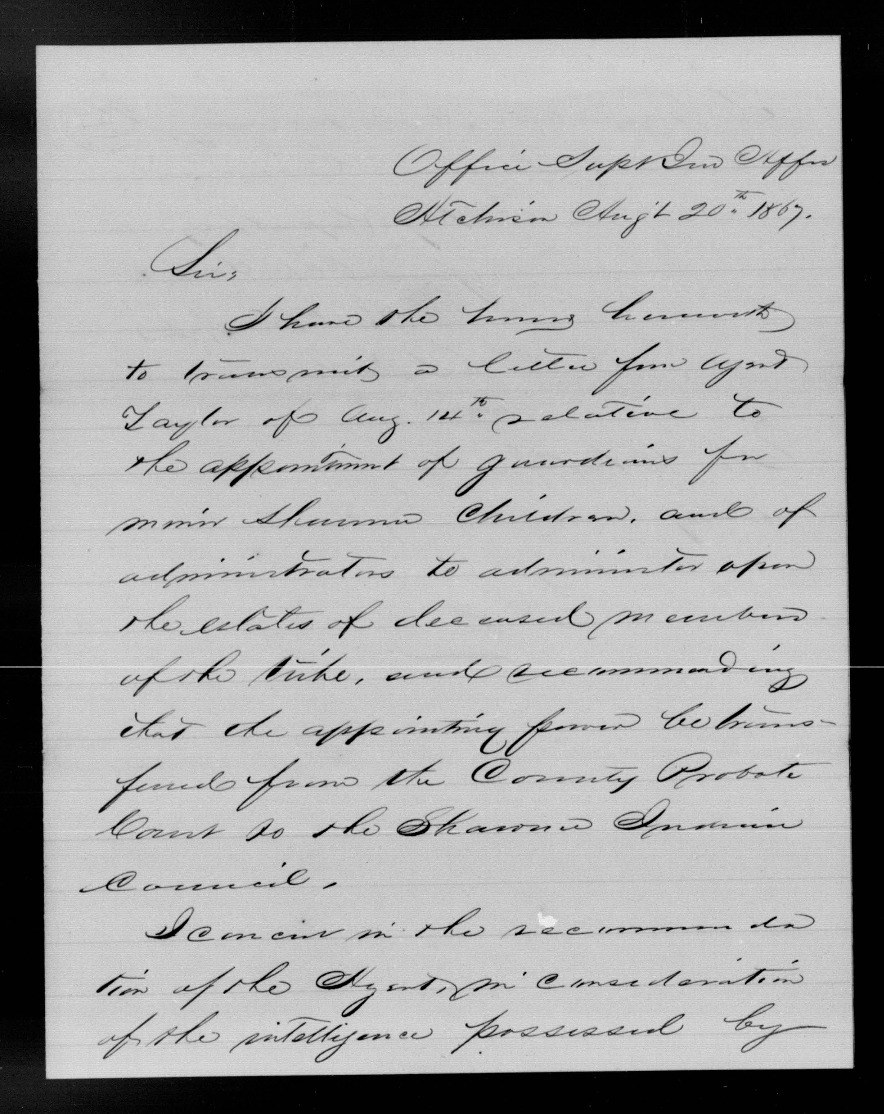 Office Supt Ind Affrs
Atchison Aug't 20th 1867.
Sir;
I have the honor herewith
to transmit a letter from Agent
Taylor of Aug. 14th relative to
the appointment of guardians for
minor Shawnee Children, and of
administrators to administer upon
the estates of deceased members
of the tribe, and recommending
that the appointing power be trans-
fered from the County Probate
Court to the Shawnee Indian
Council.
I concur in the recommenda
tion of the Agent, in consideration
of the intelligence possessed by